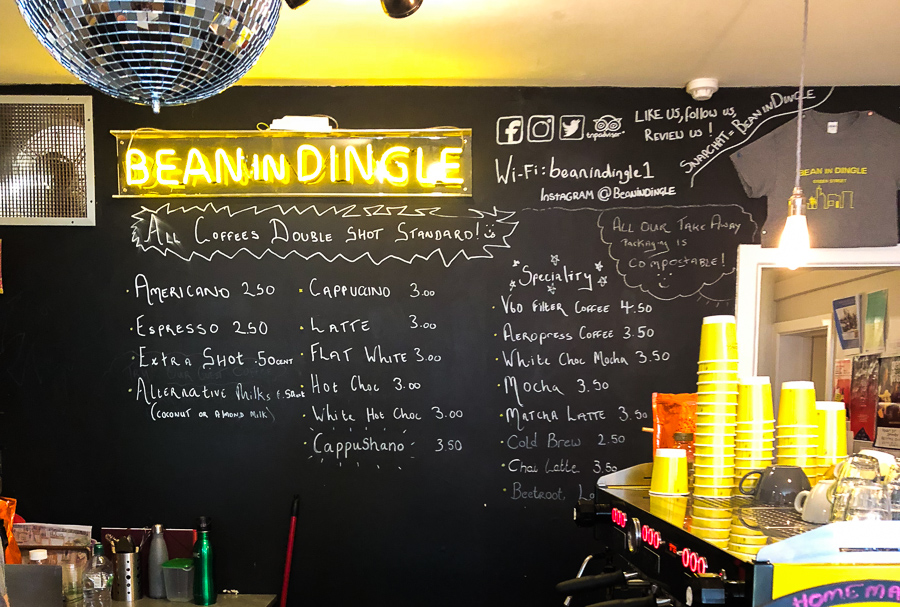 BEAN IN DINGLE
ALL COFFEES DOUBLE SHOT STANDARD!
AMERICANO 2.50
ESPRESSO 2.50
EXTRA SHOT .50CENT
ALTERNATIVE MILKS
(COCONUT OR ALMOND MILK)
CAPPUCINO 3.00
LATTE 3.00
FLAT WHITE 3.00
HOT CHOC 3.00
WHITE HOT CHOC 3.00
CAPPUSHANO 3.50
tripadvisor
LIKE US, FOLLOW US,
REVIEW US!
SNAPCHAT = BEANINDINGLE
Wi-Fi: beanindingle1
INSTAGRAM @BEANINDINGLE
ALL OUR TAKE AWAY
PACKAGING IS
COMPOSTABLE!
Speciality
V60 FILTER COFFEE 4.50
AEROPRESS COFFEE 3.50
WHITE CHOC MOCHA 3.50
MOCHA 3.50
MATCHA LATTE 3.50
COLD BREW 2.50
Chai Latte 3.50
Beetroot
BEAN IN DINGLE
GREEN STREET
HOMEMA